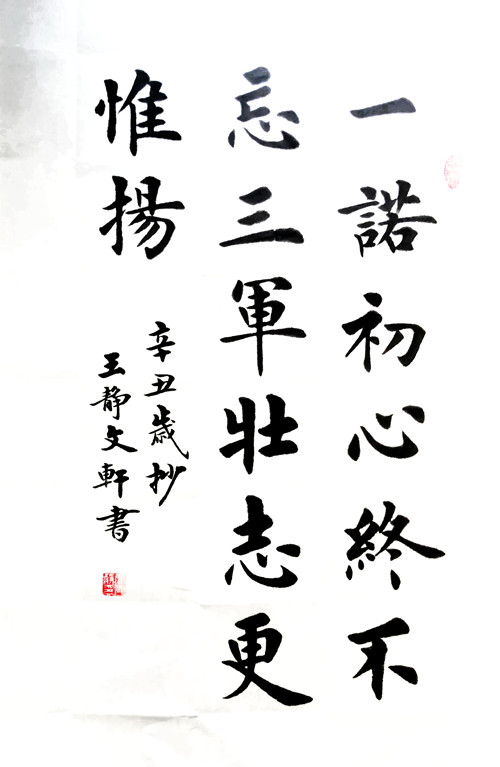 一諾初心終不
忘三軍壯志更
惟揚
辛丑歲抄
王靜文軒書